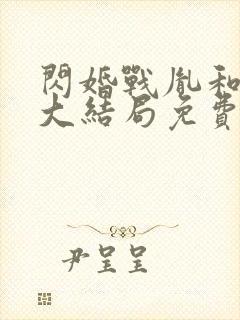 閃婚戰胤和
大結局免費
尹呈呈